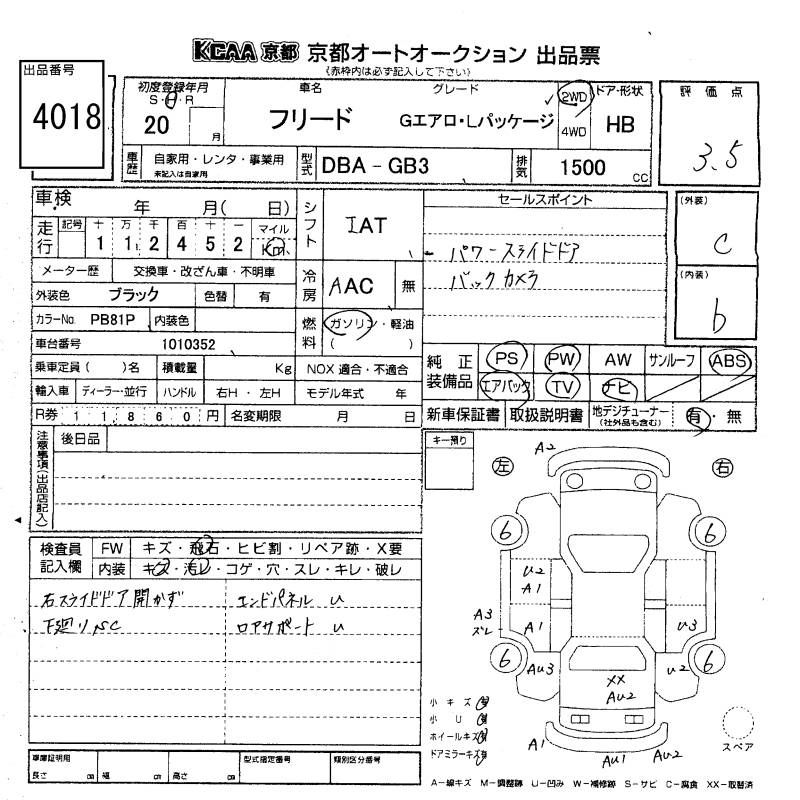 KCAA 京都 京都オートオークション 出品票
(赤枠内は必ず記入して下さい)
出品番号
4018
初度登録年月
S・H・R
20 月
車名
フリード
グレード
Gエアロ・Lパッケージ
2WD
4WD
ドア・形状
HB
評価点
3.5
車歴
自家用・レンタ・事業用
未記入は自家用
型式
DBA-GB3
排気
1500 CC
車検 年 月( 日)
走行
記号 十 万 千 百 十 一 マイル
1 1 2 4 5 2 Km
シフト
IAT
セールスポイント
パワースライドドア
バックカメラ
(外装)
C
(内装)
b
メーター歴 交換車・改ざん車・不明車
外装色 ブラック 色替 有
冷房
AAC 無
カラーNo. PB81P 内装色
燃料
ガソリン・軽油
( )
車台番号 1010352
乗車定員( )名 積載量 Kg NOX 適合・不適合
輸入車 ディーラー・並行 ハンドル 右H・左H モデル年式 年
R券 11860円 名変期限 月 日
純正装備品
PS PW AW サンルーフ ABS
エアバック TV ナビ
新車保証書 取扱説明書 地デジチューナー (社外品も含む) 有・無
注意事項(出品店記入)
後日品
キー預り
左
右
検査員記入欄
FW キズ・飛石・ヒビ割・リペア跡・X要
内装 キズ・汚レ・コゲ・穴・スレ・キレ・破レ
右スライドドア開かず エンドパネル U
下廻りSC ロアサポート U
A2
6
6
U2
A1
A3
ズレ
A1
U3
6
6
AU3
U2
XX
AU2
A1
AU1
AU2
小キズ
小U
ホイールキズ
ドアミラーキズ
スペア
車庫証明用
長さ cm 幅 cm 高さ cm
型式指定番号
類別区分番号
A-線キズ M-調整跡 U-凹み W-補修跡 S-サビ C-腐食 XX-取替済